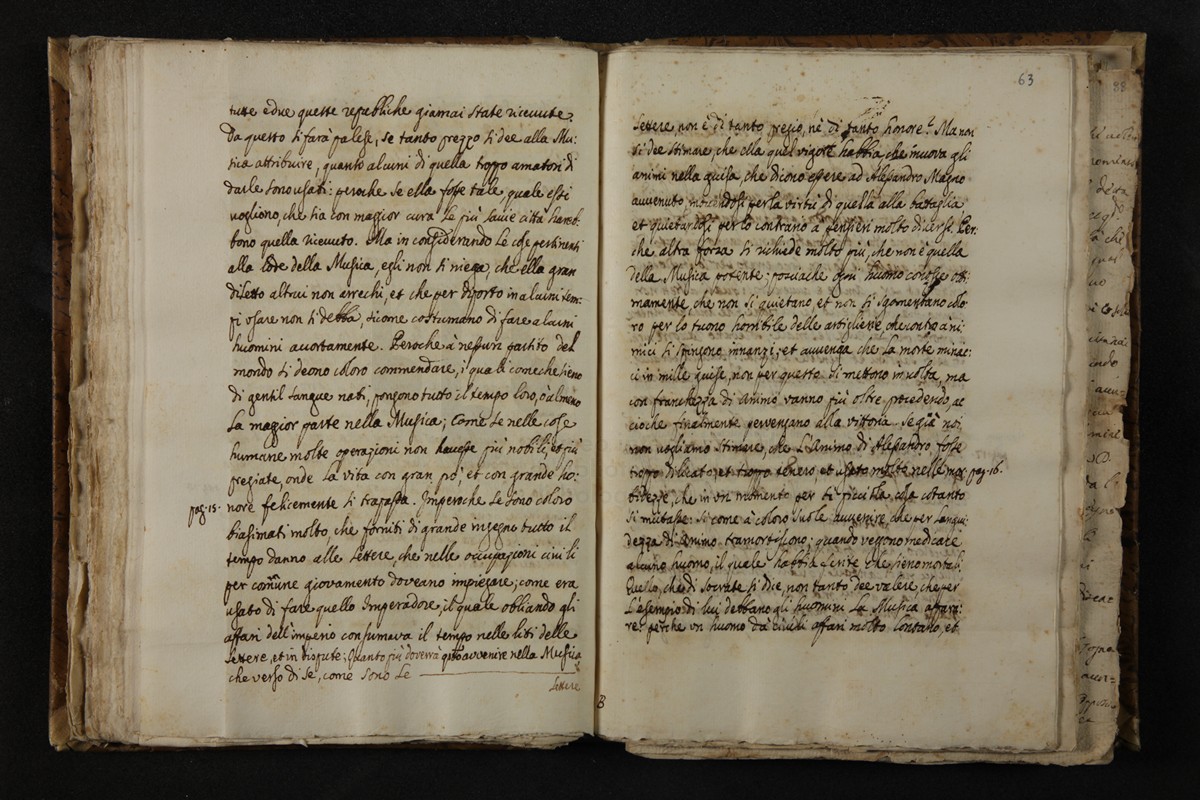 tutte e due queste republiche giamai state ricevute.
Da questo si farà palese, se tanto prezzo si dee alla Mu-
sica attribuire, quanto alcuni di quella troppo amatori di
darle sono usati: peroche se ella fosse tale, quale essi
vogliono, che sia con maggior cura le più savie città hareb-
bono quella ricevuto. Ma in considerando le cose pertinenti
alla lode della Musica, egli non si niega, che ella gran
diletto altrui non arrechi, et che per diporto in alcuni tem-
pi usare non si debba, sicome costumano di fare alcuni
huomini accortamente. Peroche à nessun partito del
mondo si deono coloro commendare, i quali comeche sieno
di gentil sangue nati, pongono tutto il tempo loro, ò almeno
la maggior parte nella Musica; come se nelle cose
humane molte operazioni non havesse più nobili, et più
pregiate, onde la vita con gran prò, et con grande ho-
pag. 15. nore felicemente si trapassa. Imperoche se sono coloro
biasimati molto, che forniti di grande ingegno tutto il
tempo danno alle lettere, che nelle occupazioni civili
per comune giovamento doveano impiegare; come era
usato di fare quello Imperadore, il quale obliando gli
affari dell'imperio consumava il tempo nelle liti delle
lettere, et in dispute; Quanto più doverrà questo avvenire nella Musica
che verso di sè, come sono le
lettere
B
63
lettere, non è di tanto pregio, nè di tanto honore. Ma non
si dee stimare, che ella quel vigore habbia che muova gli
animi nella guisa, che dicono essere ad Alesandro Magno
avvenuto, movendosi per la virtù di quella alla battaglia
et quietandosi per lo contrario à pensieri molto diversi. Per-
che altra forza si richiede molto più, che non è quella
della Musica potente; posciache ogni huomo conosce otti-
mamente, che non si quietano, et non si sgomentano colo-
ro per lo tuono horribile delle artiglierie, che contro à ni-
mici si spingono innanzi; et avvenga che la morte minac-
ci in mille guise, non per questo si mettono in volta, ma
con franchezza di animo vanno più oltre procedendo, ac
cioche finalmente pervengano alla vittoria. Se già noi
non vogliamo stimare, che l'Animo di Alesandro fosse
troppo dilicato, et troppo tenero, et usato molto nelle mor- pag. 16.
bidezze, che in un momento per sì picciola cosa cotanto
si mutasse: Si come à coloro suole avvenire, che per langui-
dezza di animo tramortiscono; quando veggono medicare
alcuno huomo, il quale habbia ferite che sieno mortali.
Quello, che di Socrate si dice, non tanto dee valere, che per
l'esempio di lui debbano gli huomini la Musica appara-
re: perche un huomo da civili affari molto lontano, et